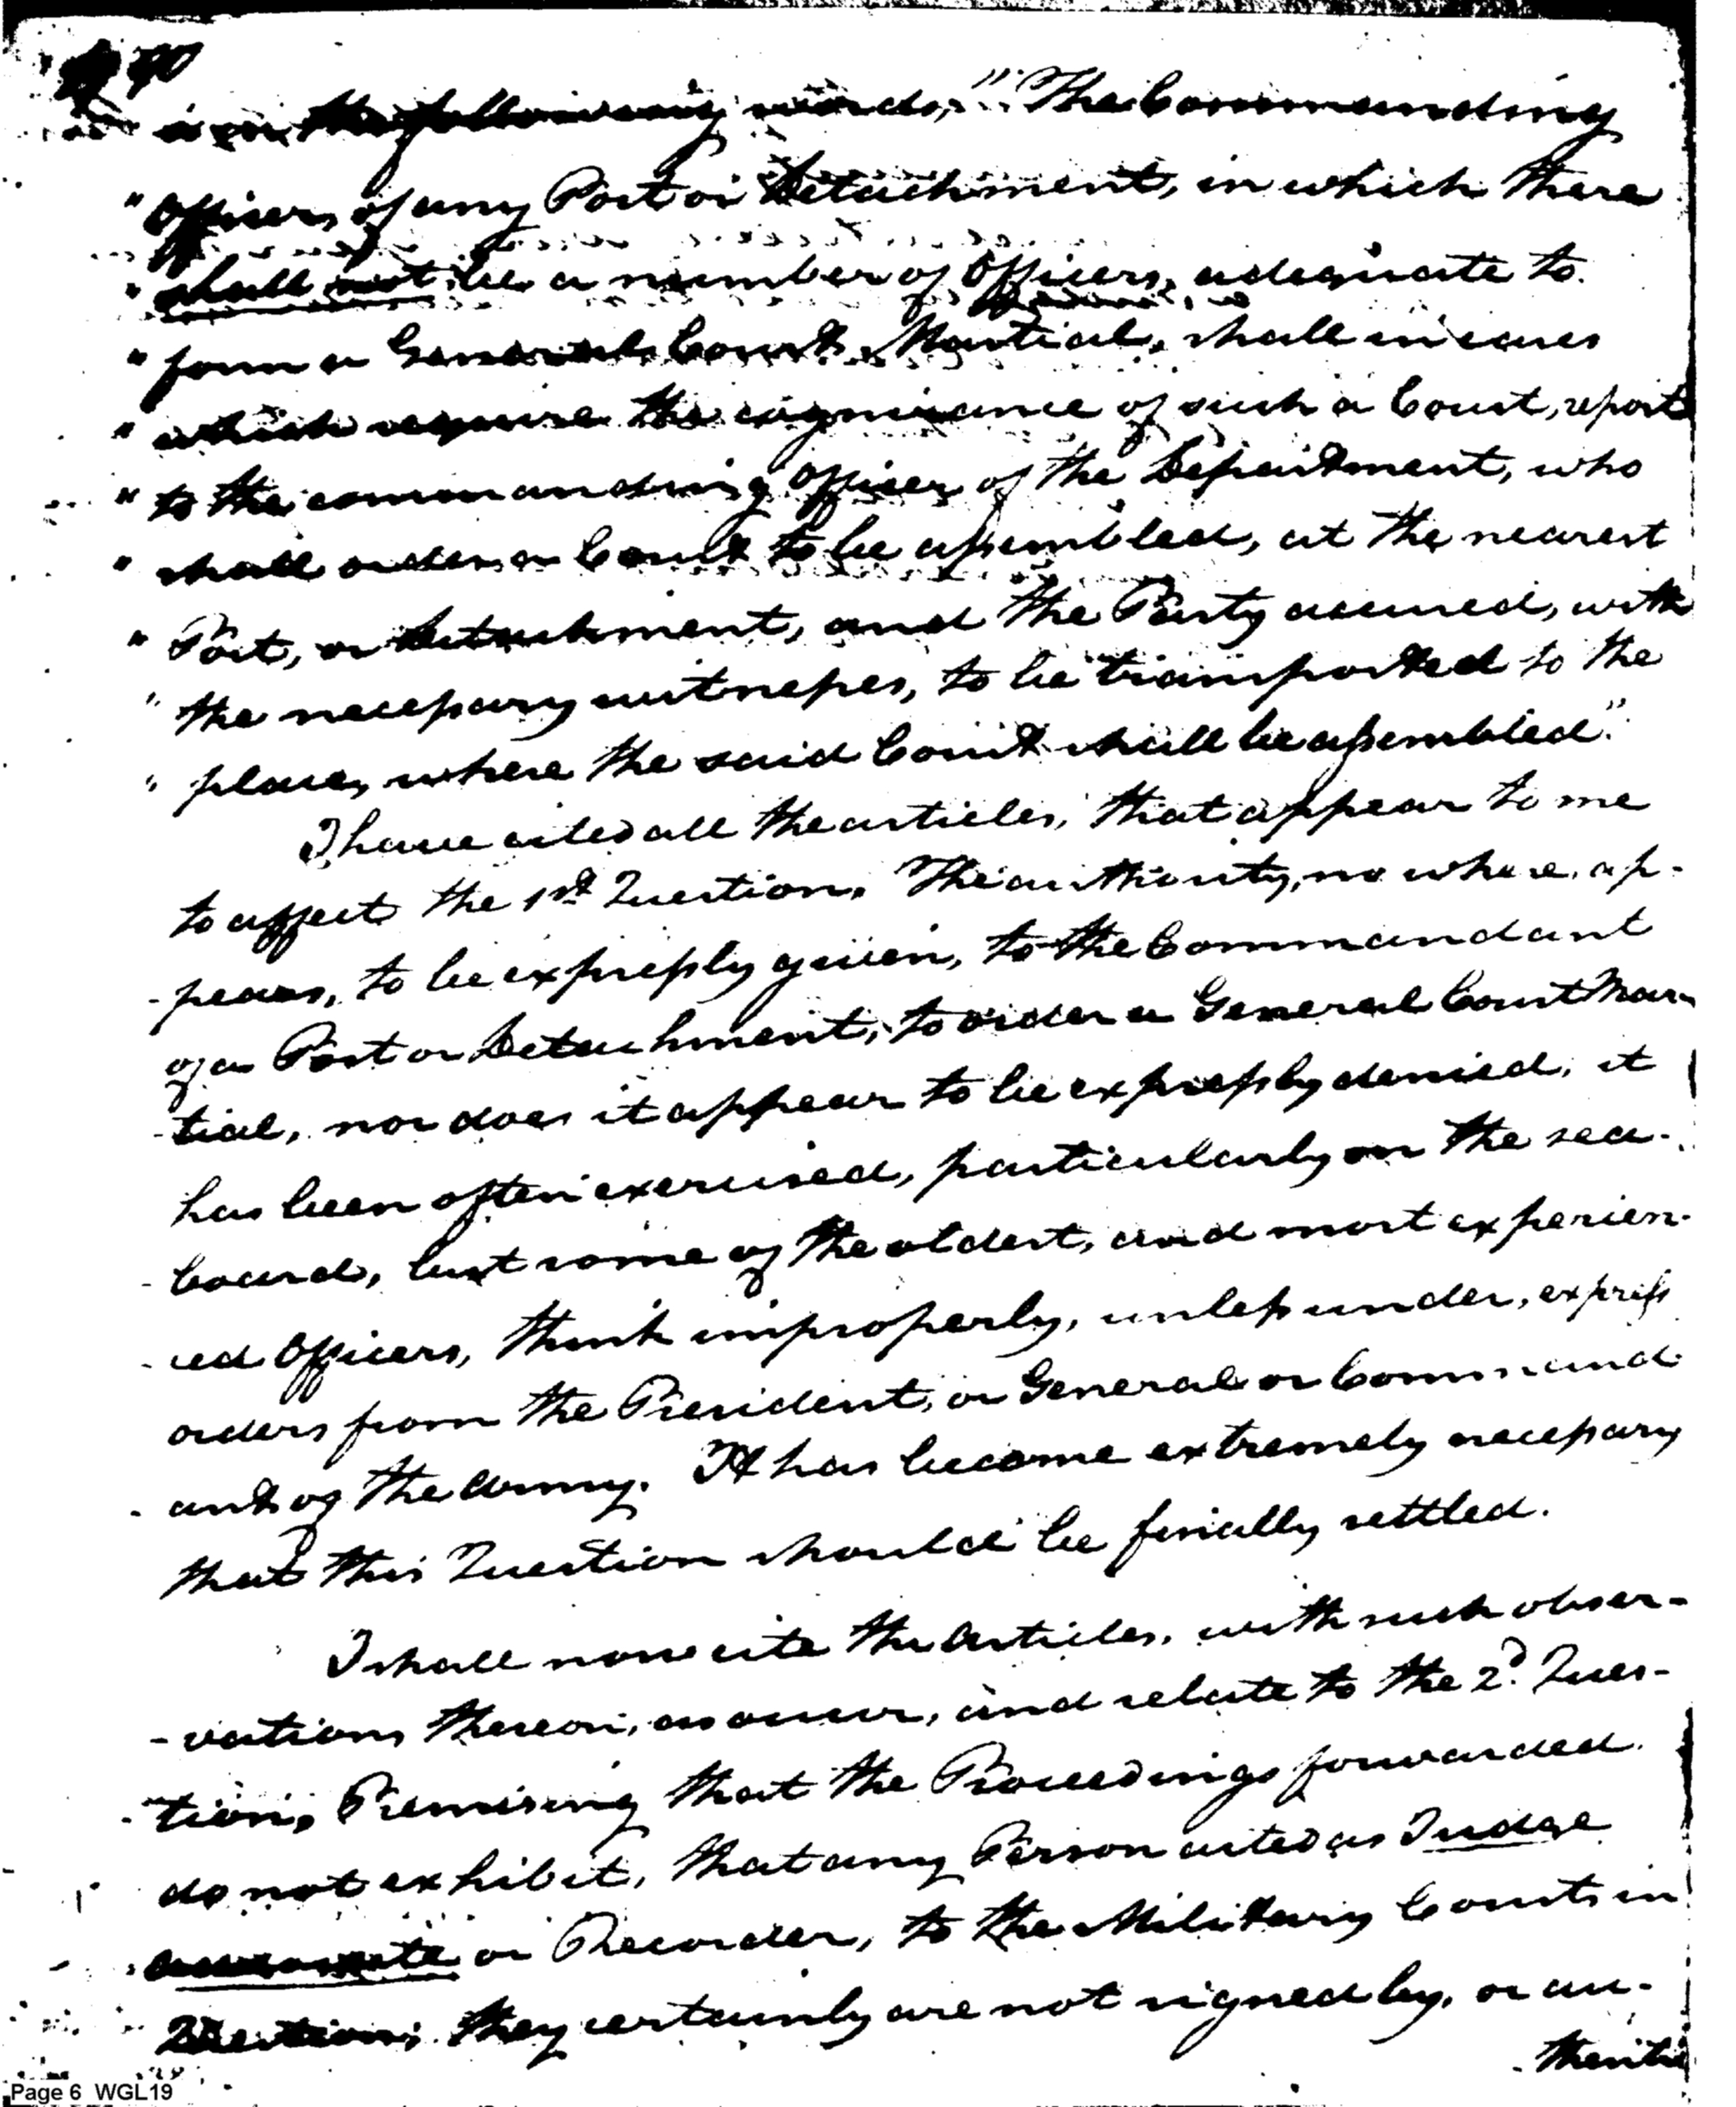 is in the following words, "The Commanding
" Officer, of any Post or Detachment, in which there
" shall not be a number of Officers, adequate to
" form a General Court Martial, shall in cases
" which require the cognizance of such a Court, report
" to the commanding Officer of the Department, who
" shall order a Court to be assembled, at the nearest
" Post, or Detachment, and the Party accused, with
" the necessary witnesses, to be transported to the
" place, where the said Court shall be assembled."
I have cited all the articles, that appear to me
to affect the 1st Question. The authority, no where ap-
-pears, to be expressly given, to the Commandant
of a Post or Detachment, to order a General Court Mar-
-tial, nor does it appear to be expressly denied, it
has been often exercised, particularly on the sea-
-board, but some of the oldest, and most experien-
-ced Officers, think improperly, unless under, express
orders from the President, or General or Command-
-ant of the Army. It has become extremely necessary
that this Question should be finally settled.
I shall now cite the Articles, with such obser-
-vations thereon, as occur, and relate to the 2d. Ques-
-tion, Premising that the Proceedings forwarded
do not exhibit, that any Person acted as Judge
Advocate or Recorder, to the Military Courts in
Question; they certainly are not signed by, or au-
thenti
Page 6 WGL19